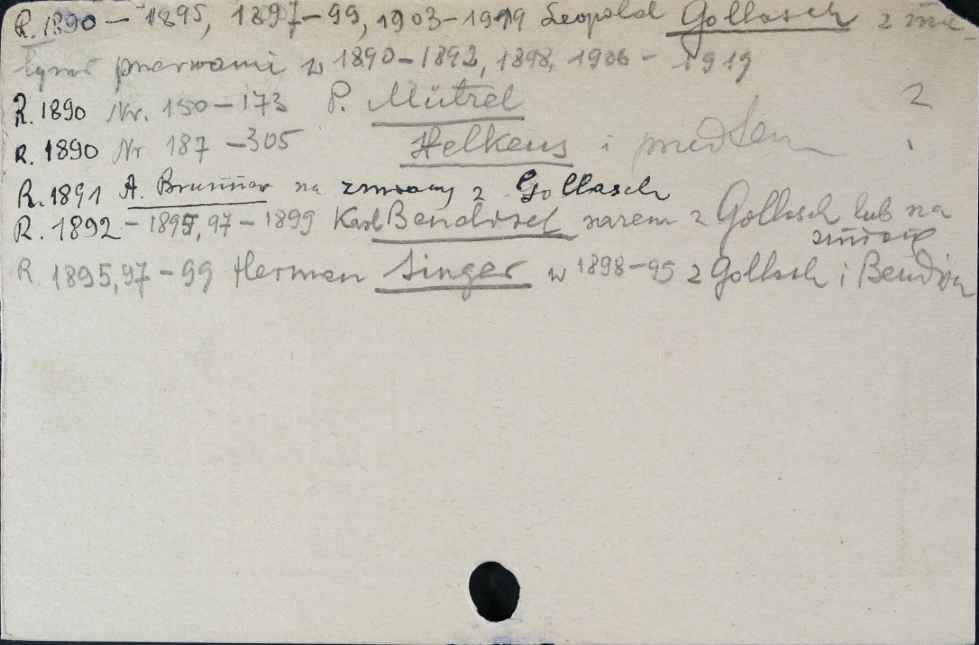 R. 1890 – 1895, 1897–99, 1903–1919 Leopold Gollasch z nie-
przerwami w 1890–1892, 1898, 1906 – 1919
R. 1890 Nr. 150–173 P. Mützel 2
R. 1890 Nr 187–305 Helkens i przedtem
R. 1891 A. Brunnar na zmiany z Gollasch
R. 1892 – 1895, 97 – 1899 Karl Bendixel razem z Gollasch lub na
zmianę
R 1895, 97–99 Herman Singer w 1898–95 z Gollasch i Bendix